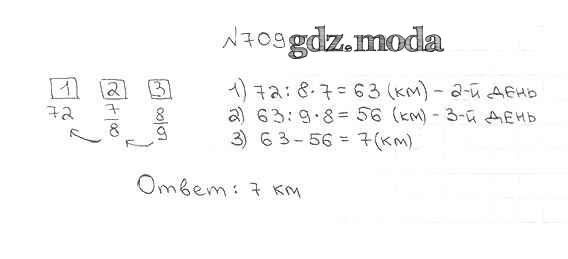 №709 gdz.moda
1 2 3
72 7/8 8/9
1) 72 : 8 · 7 = 63 (км) - 2-й день
2) 63 : 9 · 8 = 56 (км) - 3-й день
3) 63 - 56 = 7 (км)
Ответ: 7 км